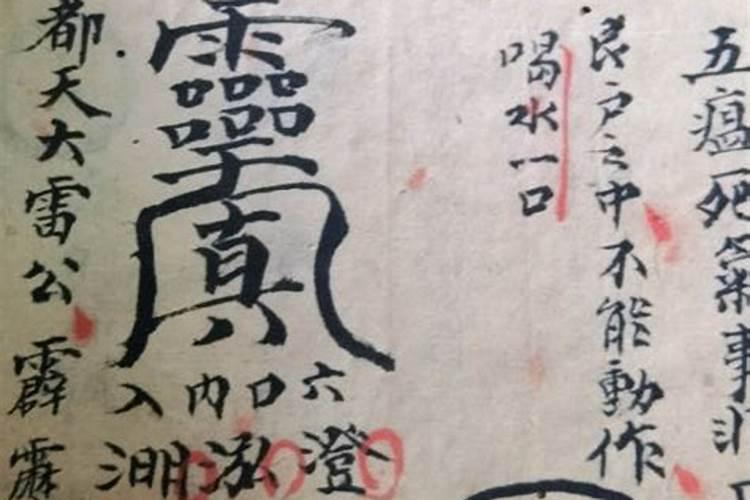 五瘟死氣事
艮户之中不能動作
喝水一口
六口内入
澄泓淜
都天大雷公霹靂